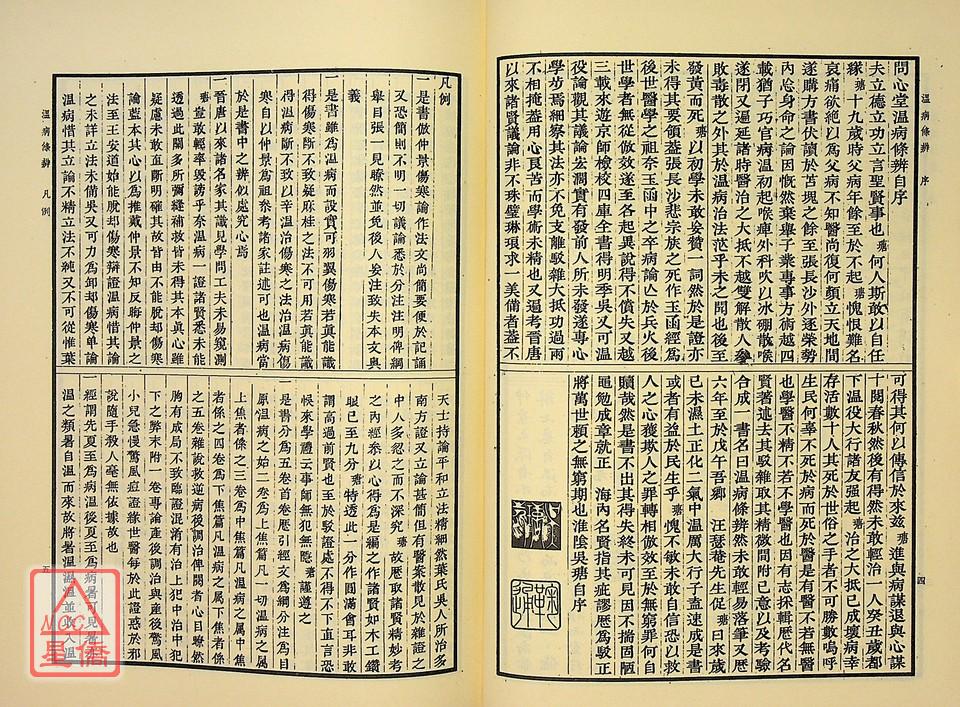 溫病條辨 序
問心堂溫病條辨自序
夫立德立功立言聖賢事也瑭何人斯敢以自任
緣瑭十九歲時父病年餘至於不起瑭愧恨難名
哀痛欲絕以為父病不知醫尚復何顏立天地間
遂購方書伏讀於苫塊之餘至張長沙外逐榮勢
內忘身命之論因慨然棄舉子業專事方術越四
載猶子巧官病溫初起喉痺外科吹以冰硼散喉
遂閉又遍延諸時醫治之大抵不越雙解散人參
敗毒散之外其於溫病治法茫乎未之聞也後至
發黃而死瑭以初學未敢妄贊一詞然於是證亦
未得其要領蓋張長沙悲宗族之死作玉函經為
後世醫學之祖奈玉函中之卒病論亡於兵火後
世學者無從倣效遂至各起異說得不償失又越
三載來遊京師檢校四庫全書得明季吳又可溫
役論觀其議論宏濶實有發前人所未發遂專心
學步焉細察其法亦不免支離駁雜大抵功過兩
不相掩蓋用心良苦而學術未精也又遍考晉唐
以來諸賢議論非不珠璧琳琅求一美備者蓋不
可得其何以傳信於來茲瑭進與病謀退與心謀
十閱春秋然後有得然未敢輕治一人癸丑歲都
下溫役大行諸友強起瑭治之大抵已成壞病幸
存活數十人其死於世俗之手者不可勝數嗚呼
生民何辜不死於病而死於醫是有醫不若無醫
也學醫不精不若不學醫也因有志採輯歷代名
賢著述去其駁雜取其精微間附已意以及考驗
合成一書名曰溫病條辨然未敢輕易落筆又歷
六年至於戊午吾鄉 汪瑟菴先生促瑭曰來歲
已未濕土正化二氣中溫厲大行子盍速成是書
或者有益於民生乎瑭愧不敏未敢自信恐以救
人之心獲欺人之罪轉相倣效至於無窮罪何自
贖哉然是書不出其得失終未可見因不揣固陋
黽勉成章就正 海內名賢指其疵謬歷為駁正
將萬世賴之無窮期也淮陰吳瑭自序
四
溫病條辨 凡例
凡例
一是書倣仲景傷寒論作法文尚簡要便於記誦
又恐簡則不明一切議論悉於分注注明俾綱
舉目張一見瞭然並免後人妄注致失本文奧
義
一是書雖為溫病而設實可羽翼傷寒若真能識
得傷寒斷不致疑麻桂之法不可用若真能識
得溫病斷不致以辛溫治傷寒之法治溫病傷
寒自以仲景為祖參考諸家註述可也溫病當
於是書中之辨似處究心焉
一晉唐以來諸名家其識見學問工夫未易窺測
瑭豈敢輕率毀謗乎奈溫病一證諸賢悉未能
透過此關多所彌縫補救皆未得其本真心雖
疑慮未敢直斷明確其故皆由不能脫却傷寒
論藍本其心以為推戴仲景不知反晦仲景之
法至王安道始能脫却傷寒辯證溫病惜其論
之未詳立法未備吳又可力為卸却傷寒單論
溫病惜其立論不精立法不純又不可從惟葉
天士持論平和立法精細然葉氏吳人所治多
南方證又立論甚簡但有醫案散見於雜證之
中人多忽之而不深究瑭故歷取諸賢精妙考
之內經參以心得為是編之作諸賢如木工鑽
眼已至九分瑭特透此一分作圓滿會耳非敢
謂高過前賢也至於駁證處不得不下直言恐
悞來學禮云事師無犯無隱瑭謹遵之
一是書分為五卷首卷歷引經文為綱分注為目
原溫病之始二卷為上焦篇凡一切溫病之屬
上焦者係之三卷為中焦篇凡溫病之屬中焦
者係之四卷為下焦篇凡溫病之屬下焦者係
之五卷雜說救逆病後調治俾閱者心目瞭然
胸有成局不致臨證混淆有治上犯中治中犯
下之弊末附一卷專論產後調治與產後驚風
小兒急慢驚風痘證緣世醫每於此證惑於邪
說隨手殺人毫無依據故也
一經謂先夏至為病溫後夏至為病暑可見暑亦
溫之類暑自溫而來故將暑溫濕溫並收入溫
五
MCC
星僑